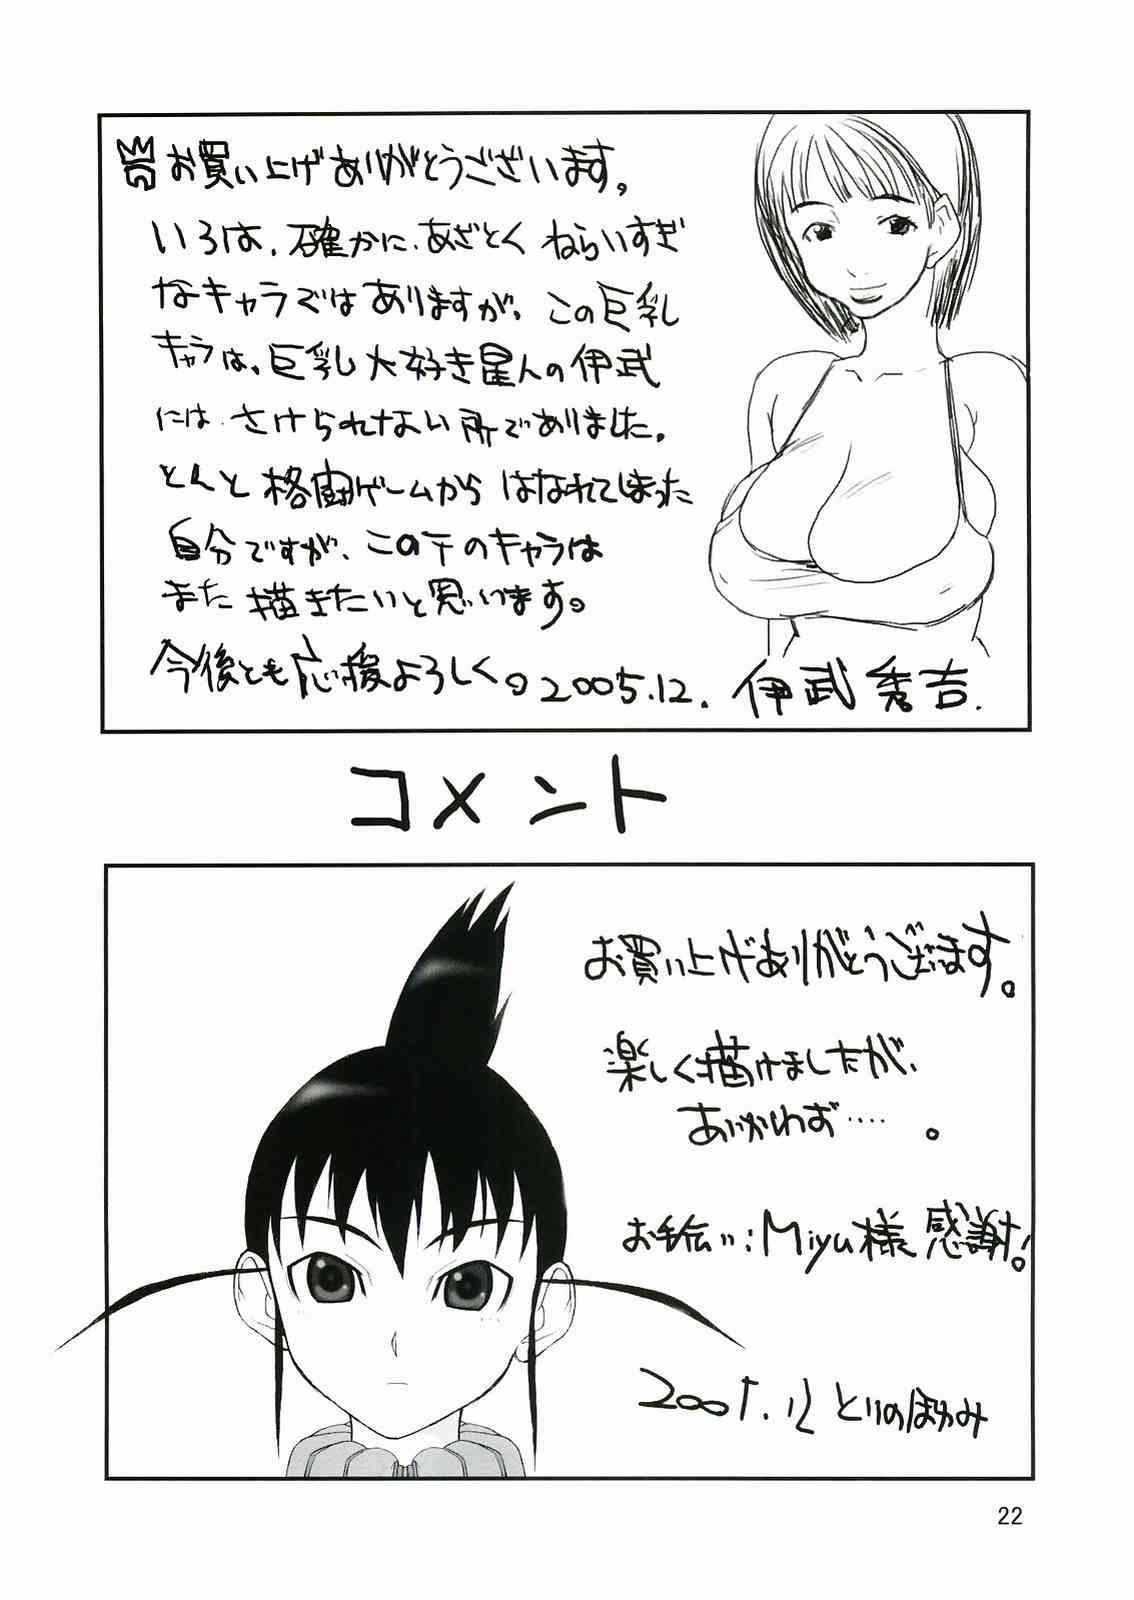 お買い上げありがとうございます。
いろは、確かに、あざとくねらいすぎ
なキャラではありますが、この巨乳
キャラは、巨乳大好き星人の伊武
には、さけられない所でありました。
とんと格闘ゲームからはなれてしまった
自分ですが、このテのキャラは
また描きたいと思います。
今後とも応援よろしく。2005.12. 伊武秀吉.
コメント
お買い上げありがとうございます。
楽しく描けましたが、
あいかわらず‥‥。
お手伝い:Miyu様感謝!
2005.12 とりのほわみ
22